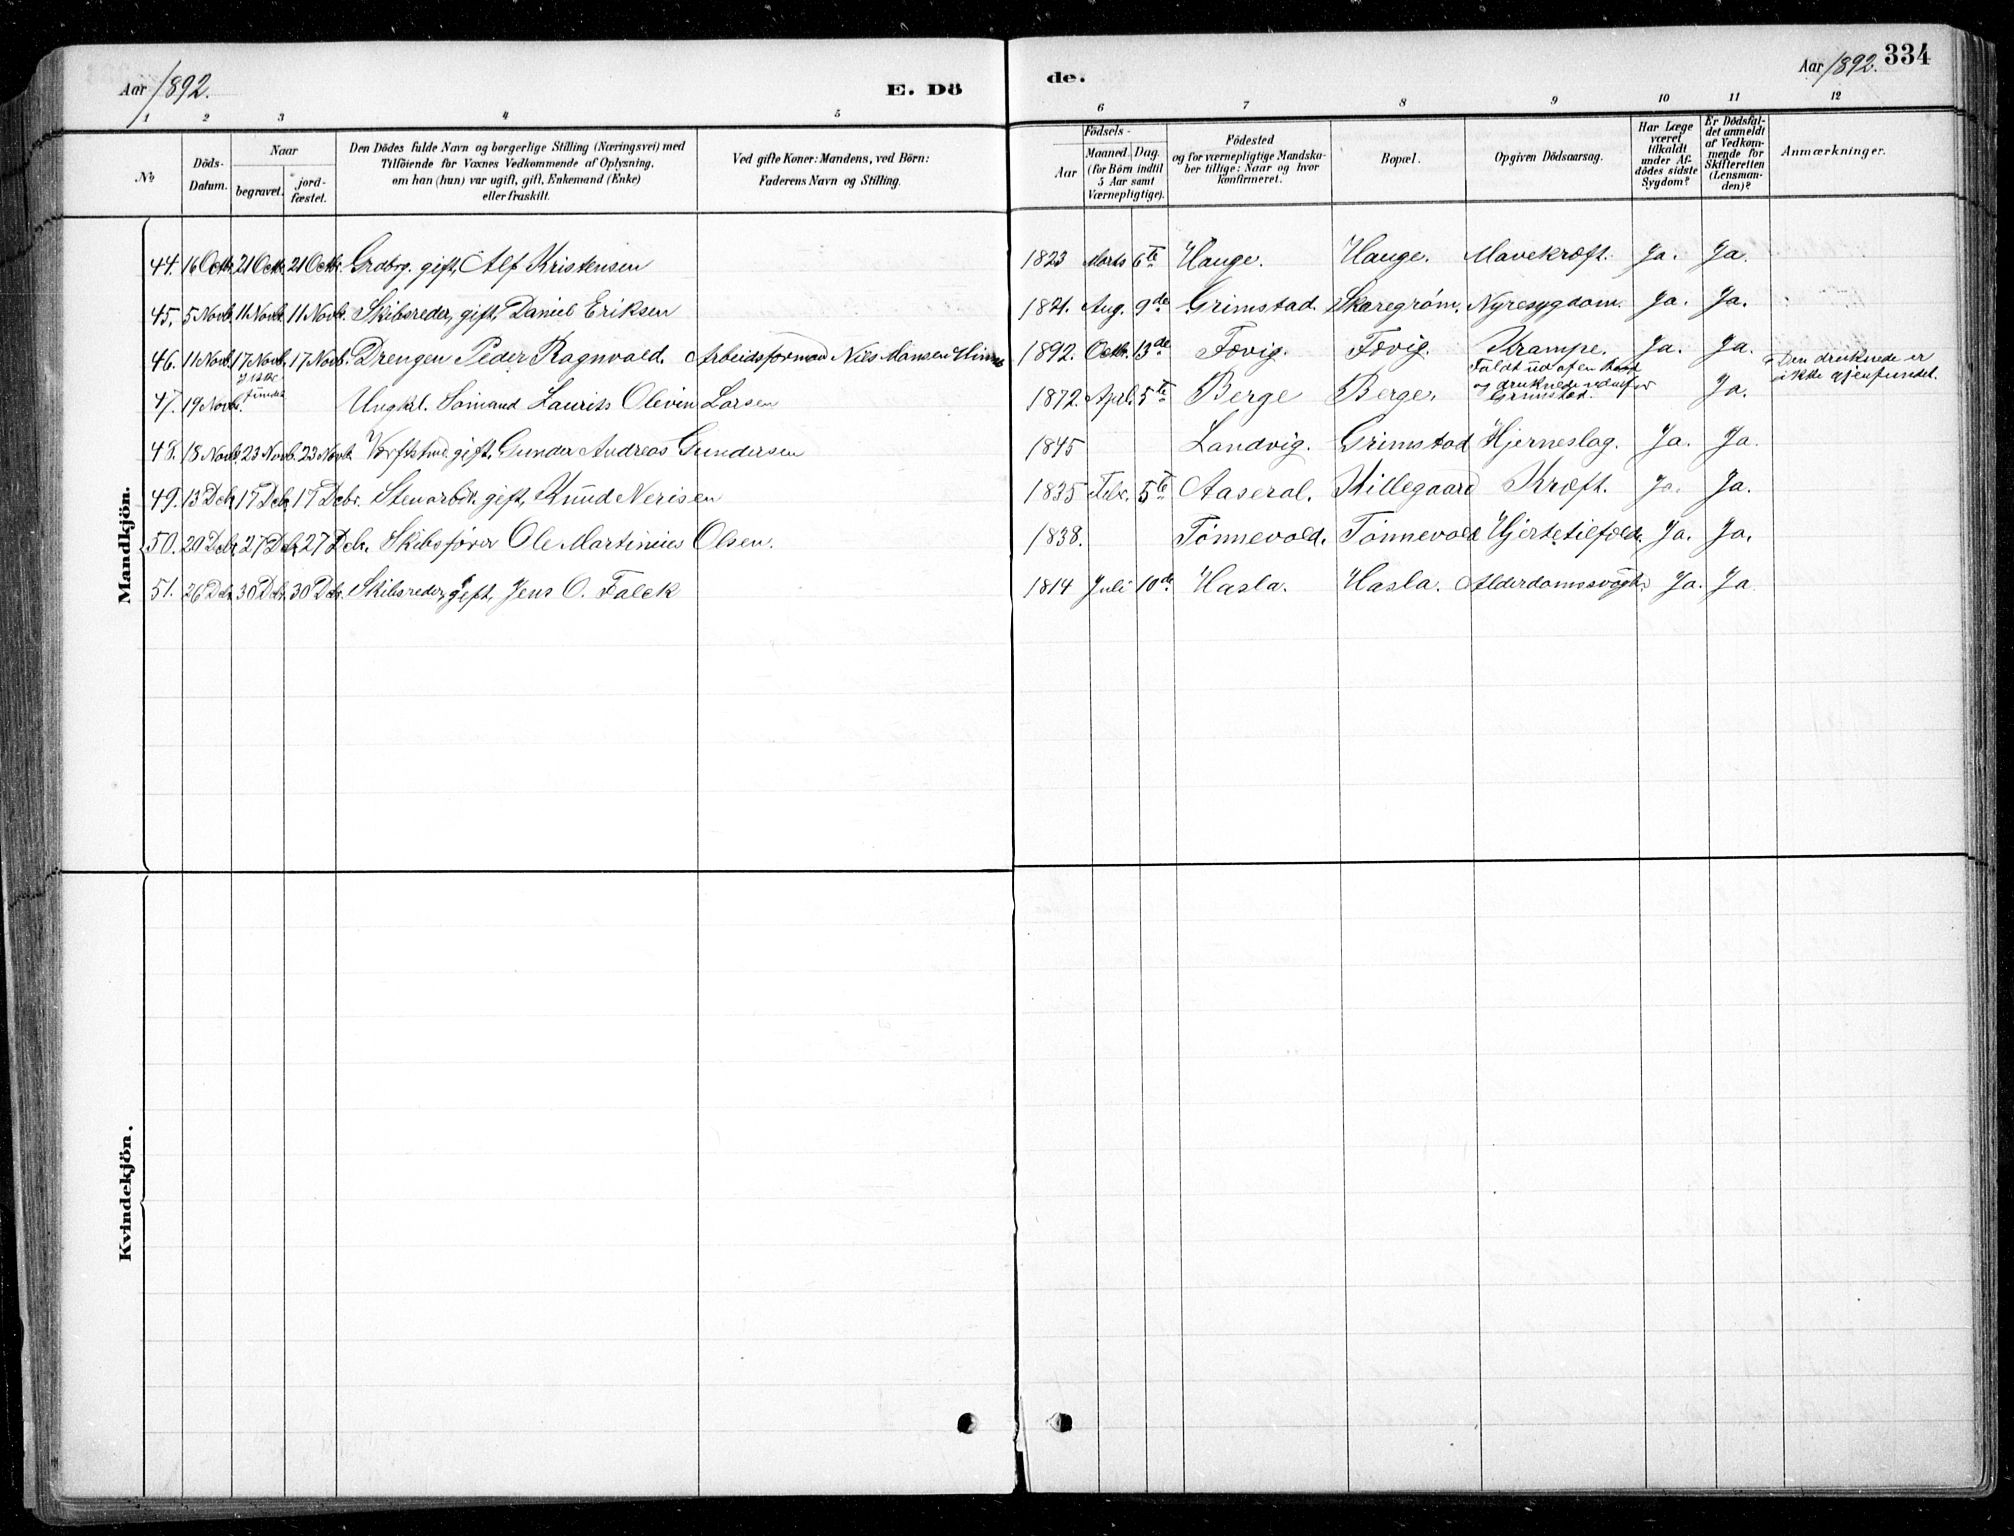 Aar 1892. E. Dö de. Aar 1892. 334
1 2 3 4 5 6 7 8 9 10 11 12
No Döds-Datum. Naar begravet. jord-fæstet. Den Dödes fulde Navn og borgerlige Stilling (Næringsvei) med Tilföiende for Voxnes Vedkommende af Oplysning, om han (hun) var ugift, gift, Enkemand (Enke) eller fraskilt. Ved gifte Koner: Mandens, ved Börn: Faderens Navn og Stilling. Födsels- Aar Maaned. Dag. (for Börn indtil 5 Aar samt Værnepligtige). Födested og for værnepligtige Mandskaber tillige: Naar og hvor konfirmeret. Bopæl. Opgiven Dödsaarsag. Har Læge været tilkaldt under Afdödes sidste Sygdom? Er Dödsfaldet anmeldt af Vedkommende for Skifteretten (Lensmanden)? Anmærkninger.
Mandkjön.
44. 16 Octbr. 21 Octbr. 21 Octbr. Grdbrg. gift, Alf Kristensen 1823 Marts 6te Hauge. Hauge. Mavekræft. Ja. Ja.
45. 5 Novb. 11 Novb. 11 Novb. Skibsreder, gift, Daniel Eriksen 1821. Aug. 9de Grimstad. Skaregrøm. Nyresygdom. Ja. Ja.
46. 11 Novb. 17 Novb. 17 Novb. Drengen Peder Ragnvald. Arbeidsformand Nils Mansen 1892. Octbr. 13de Fævig. Fævig. Krampe. Ja. Ja.
47. 19 Novb. Ikke funden Ungkl. Sømand Laurits Olevin Larsen 1872. Aprl. 5te Berge Berge. Faldt ud af en Baad og druknede udenfor Grimstad. Ja. Den druknede er ikke gjenfundet.
48. 18 Novb. 23 Novb. 23 Novb. gift, Gunder Andreas Gundersen 1845 Landvig. Grimstad Hjerneslag. Ja. Ja.
49. 13 Dcbr. 17 Dcbr. 17 Dcbr. Stenarb. gift, Knud Nerisen 1835 Febr. 5te Aaseral. Killegaard Kræft. Ja. Ja.
50. 20 Dcbr. 27 Dcbr. 27 Dcbr. Skibsfører Ole Martinius Olsen. 1838. Tønnevold. Tønnevold Hjertetilfælde. Ja. Ja.
51. 26 Dcbr. 30 Dcbr. 30 Dcbr. Skibsreder, gift, Jens O. Falck 1814 Juli 10de Hasla. Hasla. Ja. Ja
Kvindekjön.